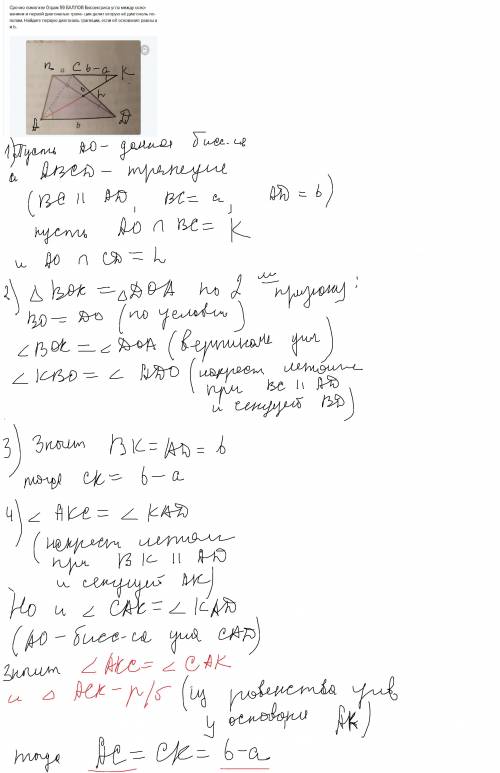 Срочно помогите Отдам 99 БАЛЛОВ Биссектриса угла между осно-
ванием и первой диагональю трапе- ции делит вторую её диагональ по-
полам. Найдите первую диагональ трапеции, если её основания равны а
и b.
B a C b-a K
L
A b D
1) Пусть AO - данная бисс-са
и ABCD - трапеция
(BC || AD, BC = a, AD = b)
пусть AO ∩ BC = K
и AO ∩ CD = L
2) △ BOK = △DOA по 2 му признаку:
BO = DO (по условию)
∠BOK = ∠DOA (вертикале угл)
∠KBO = ∠ADO (накрест лежащие
при BC || AD
и секущей BD)
3) Значит BK = AD = b
тогда CK = b-a
4) ∠ AKC = ∠ KAD
(накрест лежащ
при BK || AD
и секущей AK)
Но и ∠ CAK = ∠ KAD
(AO - бисс-са угла CAD)
Значит ∠AKC = ∠CAK
и △ ACK - р/б (из равенства углв
у основани AK)
тогда AC = CK = b-a